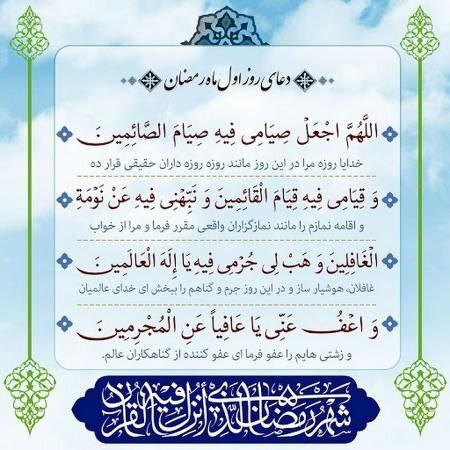 دعای روز اول ماه رمضان
اللَّهُمَّ اجْعَلْ صِيَامِي فِيهِ صِيَامَ الصَّائِمِينَ
خدایا روزه مرا در این روز مانند روزه روزه داران حقیقی قرار ده
وَ قِيَامِي فِيهِ قِيَامَ الْقَائِمِينَ وَ نَبِّهْنِي فِيهِ عَنْ نَوْمَةِ
و اقامه نمازم را مانند نمازگزاران واقعی مقرر فرما و مرا از خواب
الْغَافِلِينَ وَ هَبْ لِي جُرْمِي فِيهِ يَا إِلَهَ الْعَالَمِينَ
غافلان، هوشیار ساز و در این روز جرم و گناهم را ببخش ای خدای عالمیان
وَ اعْفُ عَنِّي يَا عَافِياً عَنِ الْمُجْرِمِينَ
و زشتی هایم را عفو فرما ای عفو کننده از گناهکاران عالم.
شهر رمضان الذي أنزل فيه القرآن